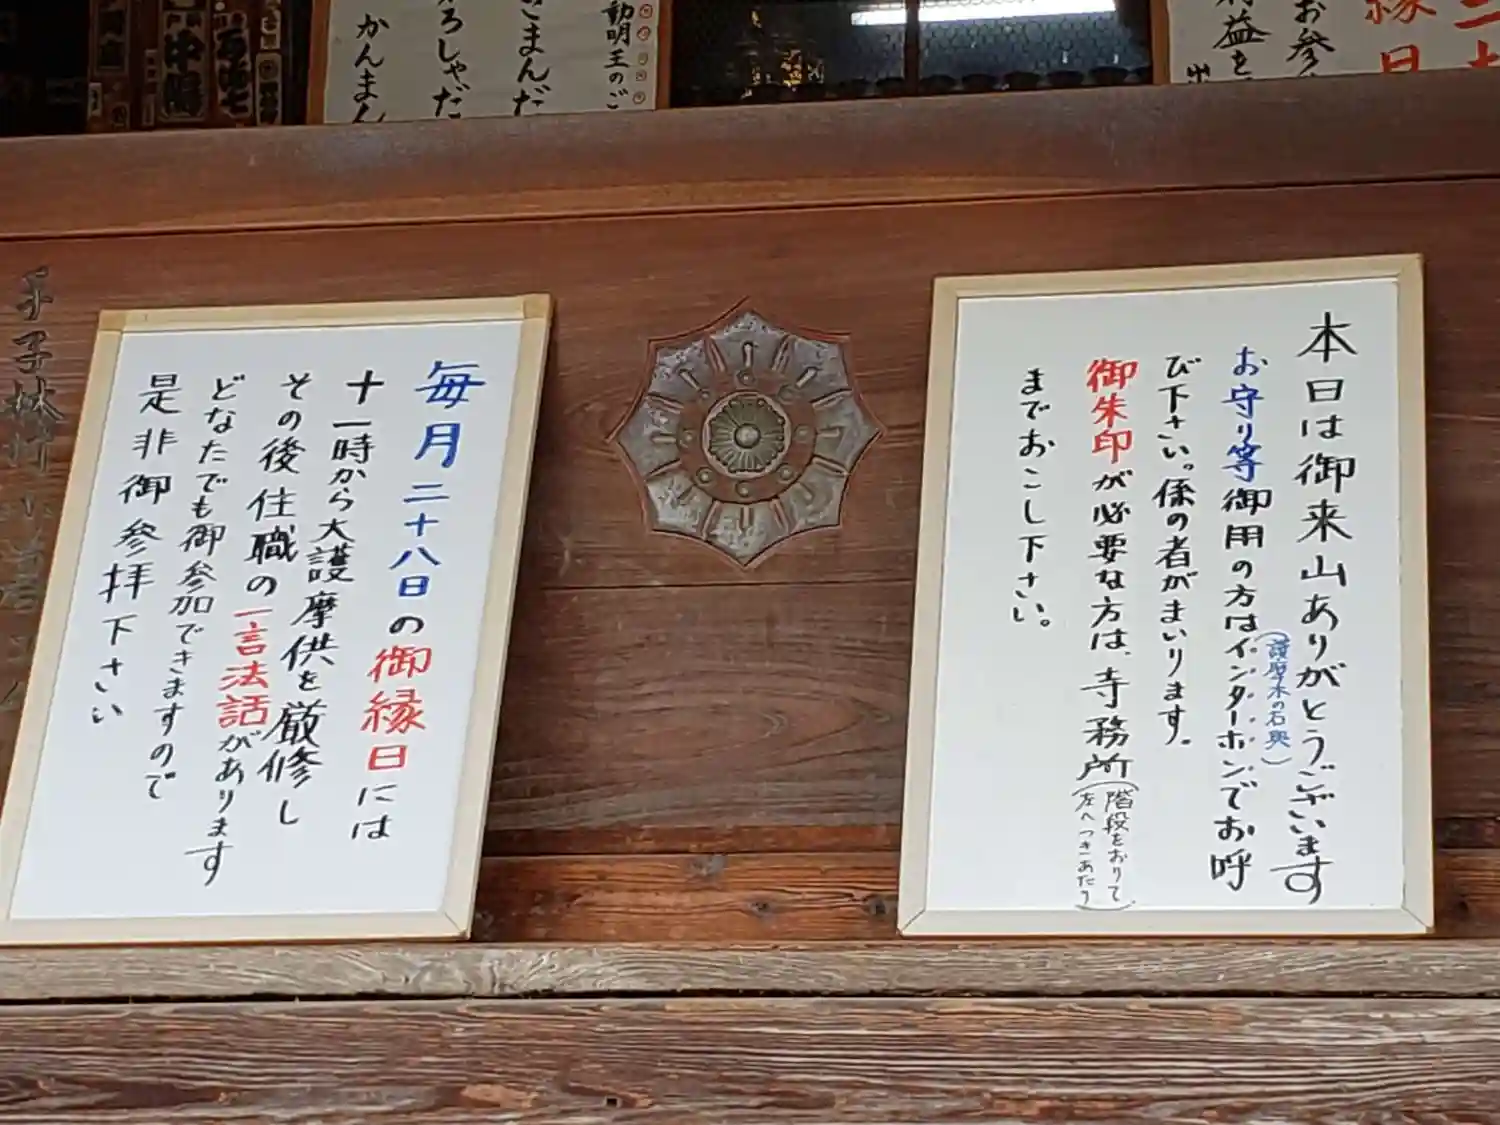 動明王のご
こまんだ
ろしゃだ
かんまん
縁日
お参
益を
本日は御来山ありがとうございます
お守り等御用の方はインターホンでお呼
(護摩木の右奥)
び下さい。係の者がまいります。
御朱印が必要な方は、寺務所
(階段をおりて
左へつきあたり)
までおこし下さい。
毎月二十八日の御縁日には
十一時から大護摩供を厳修し
その後住職の一言法話があります
どなたでも御参加できますので
是非御参拝下さい